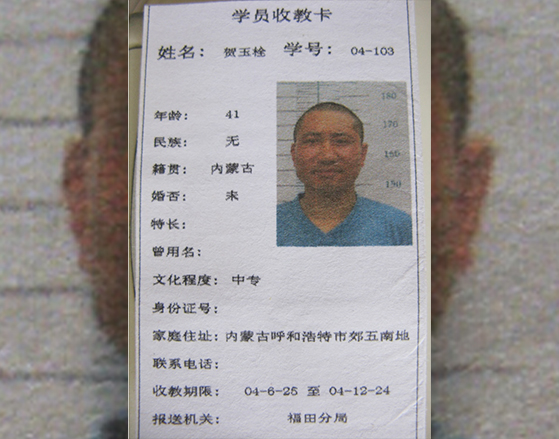 学员收教卡
姓名： 贺玉栓 学号： 04-103
年龄： 41
民族： 无
籍贯： 内蒙古
婚否： 未
特长：
曾用名：
文化程度： 中专
身份证号：
家庭住址：内蒙古呼和浩特市郊五南地
联系电话：
收教期限： 04-6-25 至 04-12-24
报送机关： 福田分局
180
170
160
150